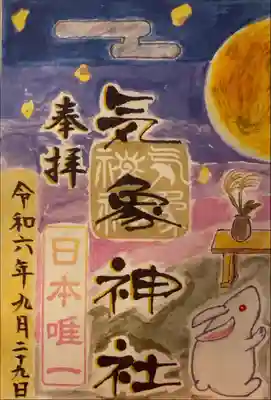 奉拝
気象神社
日本唯一
令和六年九月二十九日